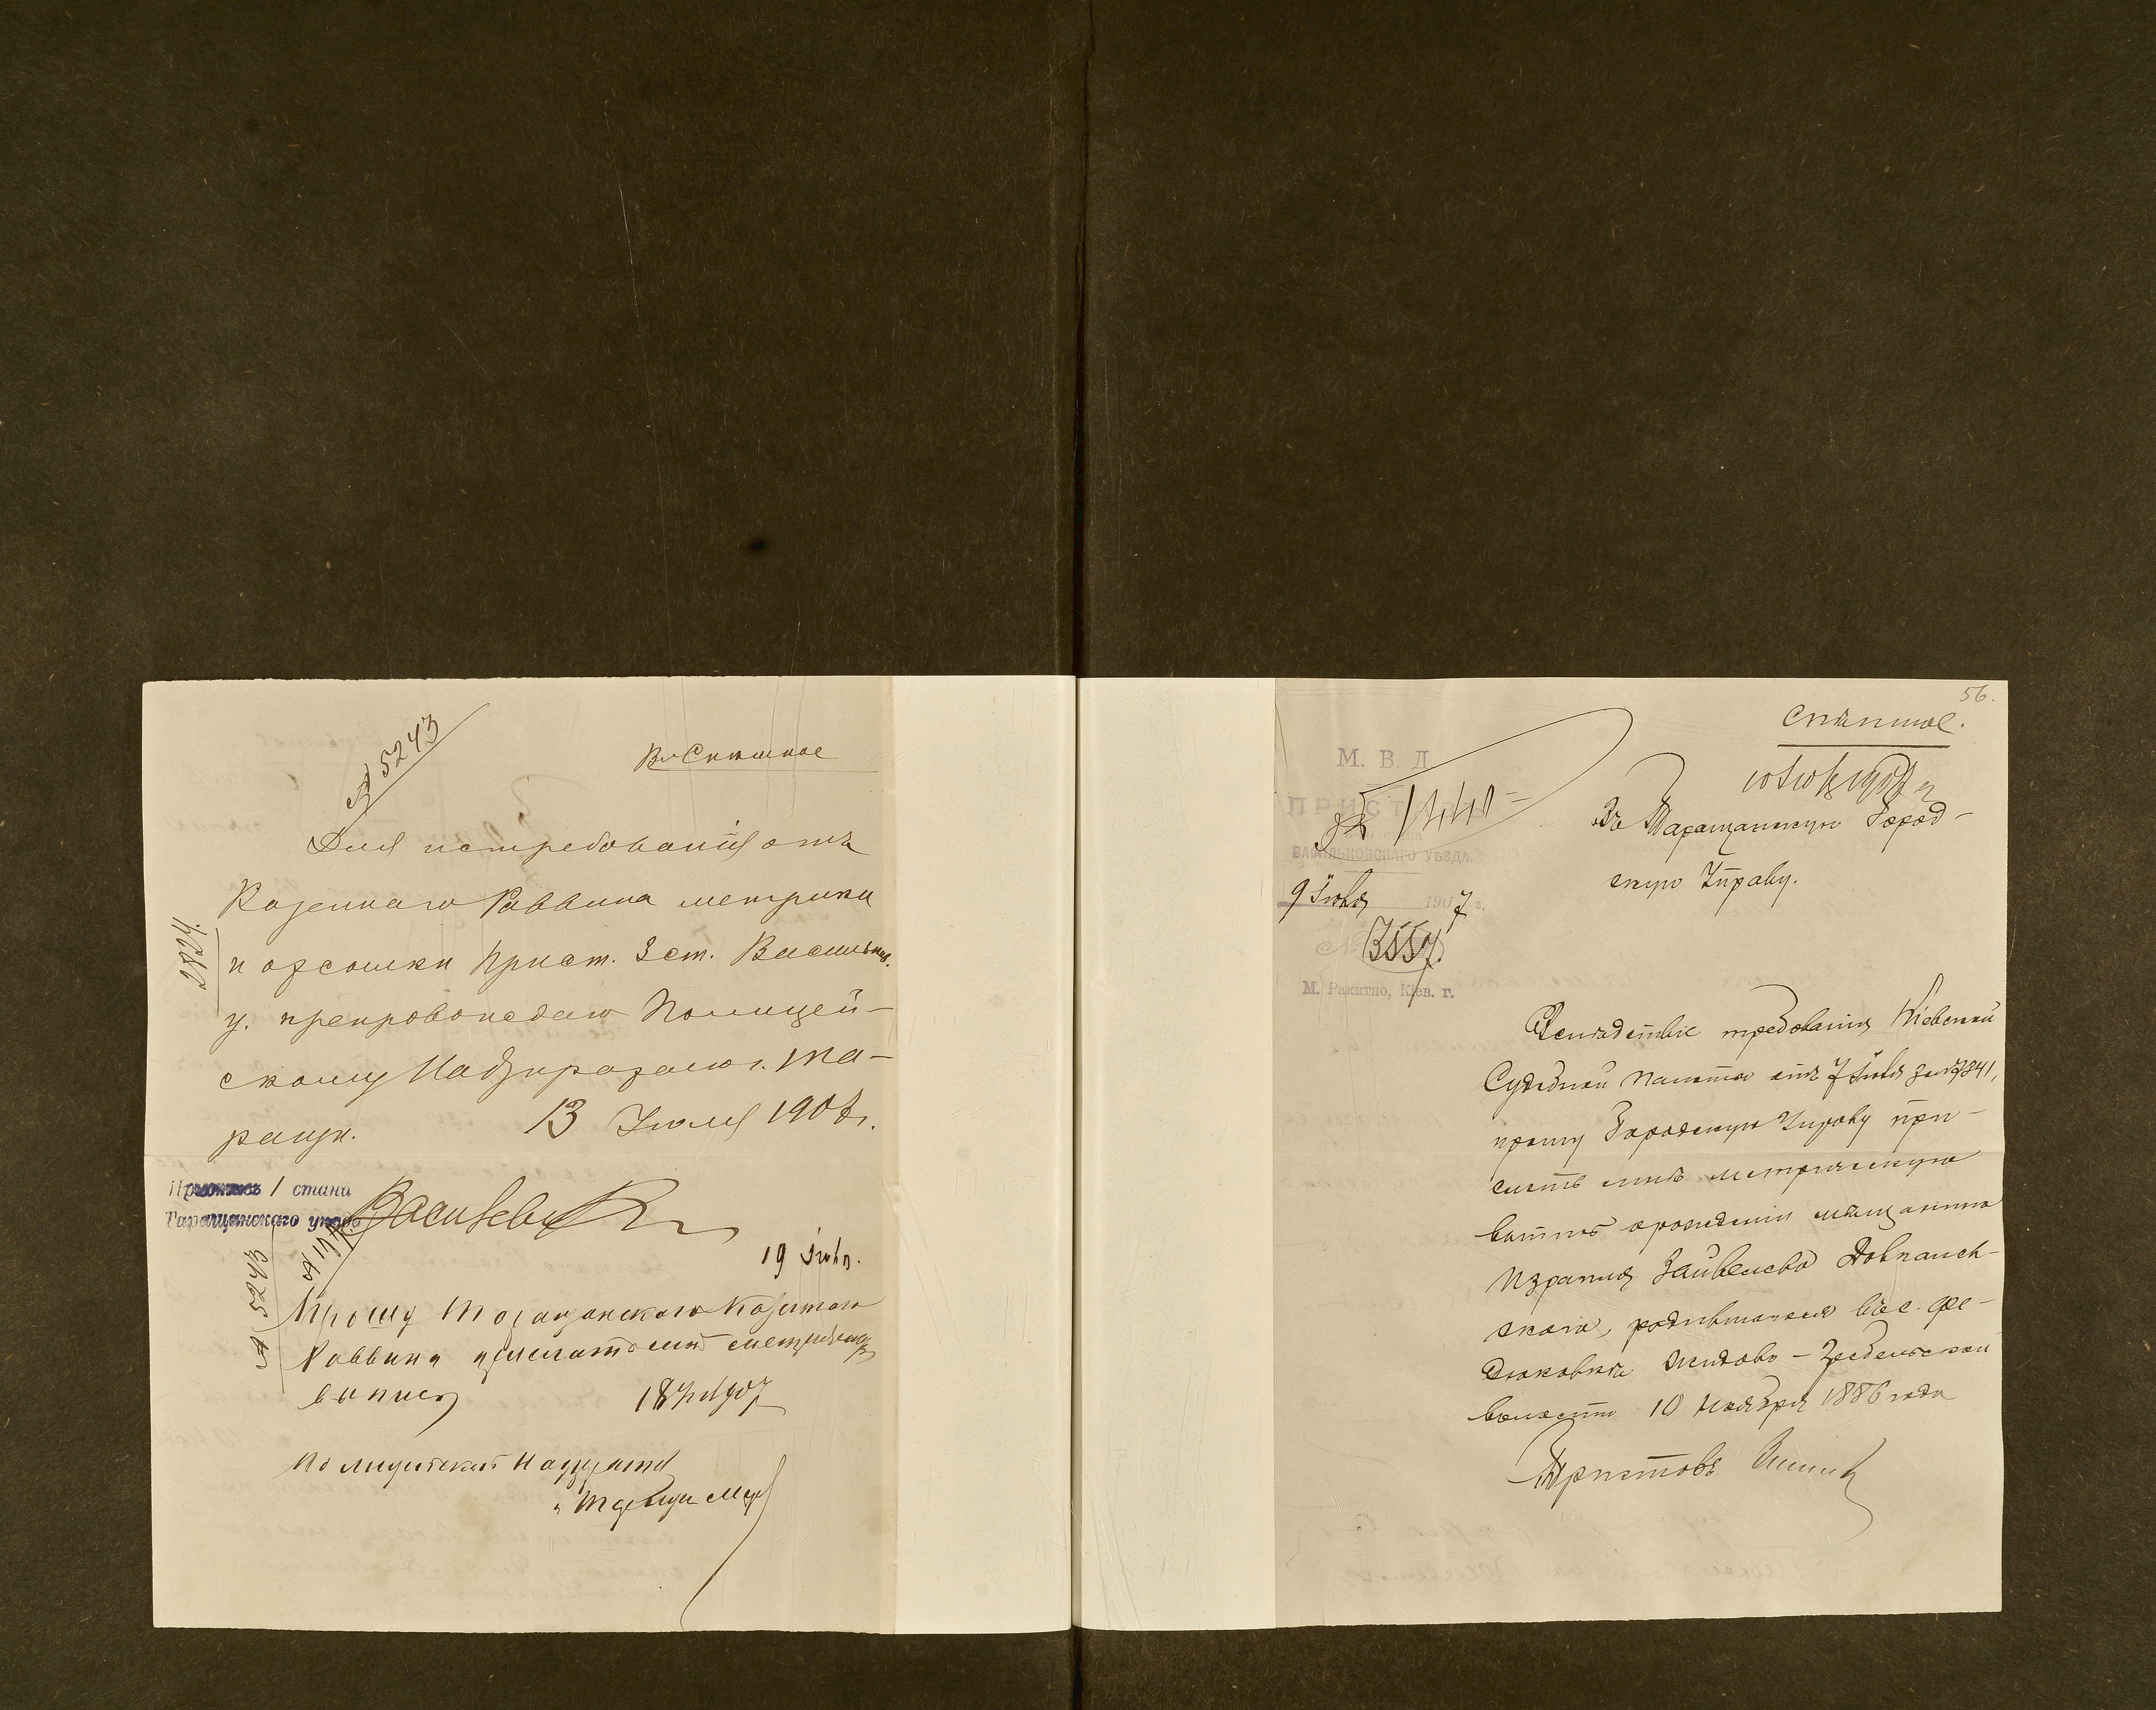 № 5243
Спѣшное
Для истребованія отъ
Казеннаго Раввина метрики
и отсылки Прист. 3 ст. Васильков.
у. препровождаю Полицей-
скому Надзирателю г. Та-
ращи.
13 Іюля 1907 г.
1 стана
Таращанскаго уѣзда
19 Іюля
№ 5243
Прошу Таращанскаго Казеннаго
Раввина прислать мнѣ метрическую
выпись
18 1907
Полицейскій Надзиратель
г. Таращи
56.
Спѣшное.
М. В. Д.
ПРИСТ
ВАСИЛЬКОВСКАГО УѢЗДА.
9 Іюля 1907 г.
№ 3557
М. Ракитно, Кіев. г.
№ 1440
Въ Таращанскую Город-
скую Управу.
Вслѣдствіе требованія Кіевской
Судебной Палаты отъ 7 Іюля за № 7841,
прошу Городскую Управу при-
слать мнѣ метрическую
выпись о рожденіи мѣщанина
Израиля Зайвелева Довгалев-
скаго, родившагося въ с. Фе-
дюковкѣ Жидово-Гребельской
волости 10 Ноября 1886 года
Приставъ